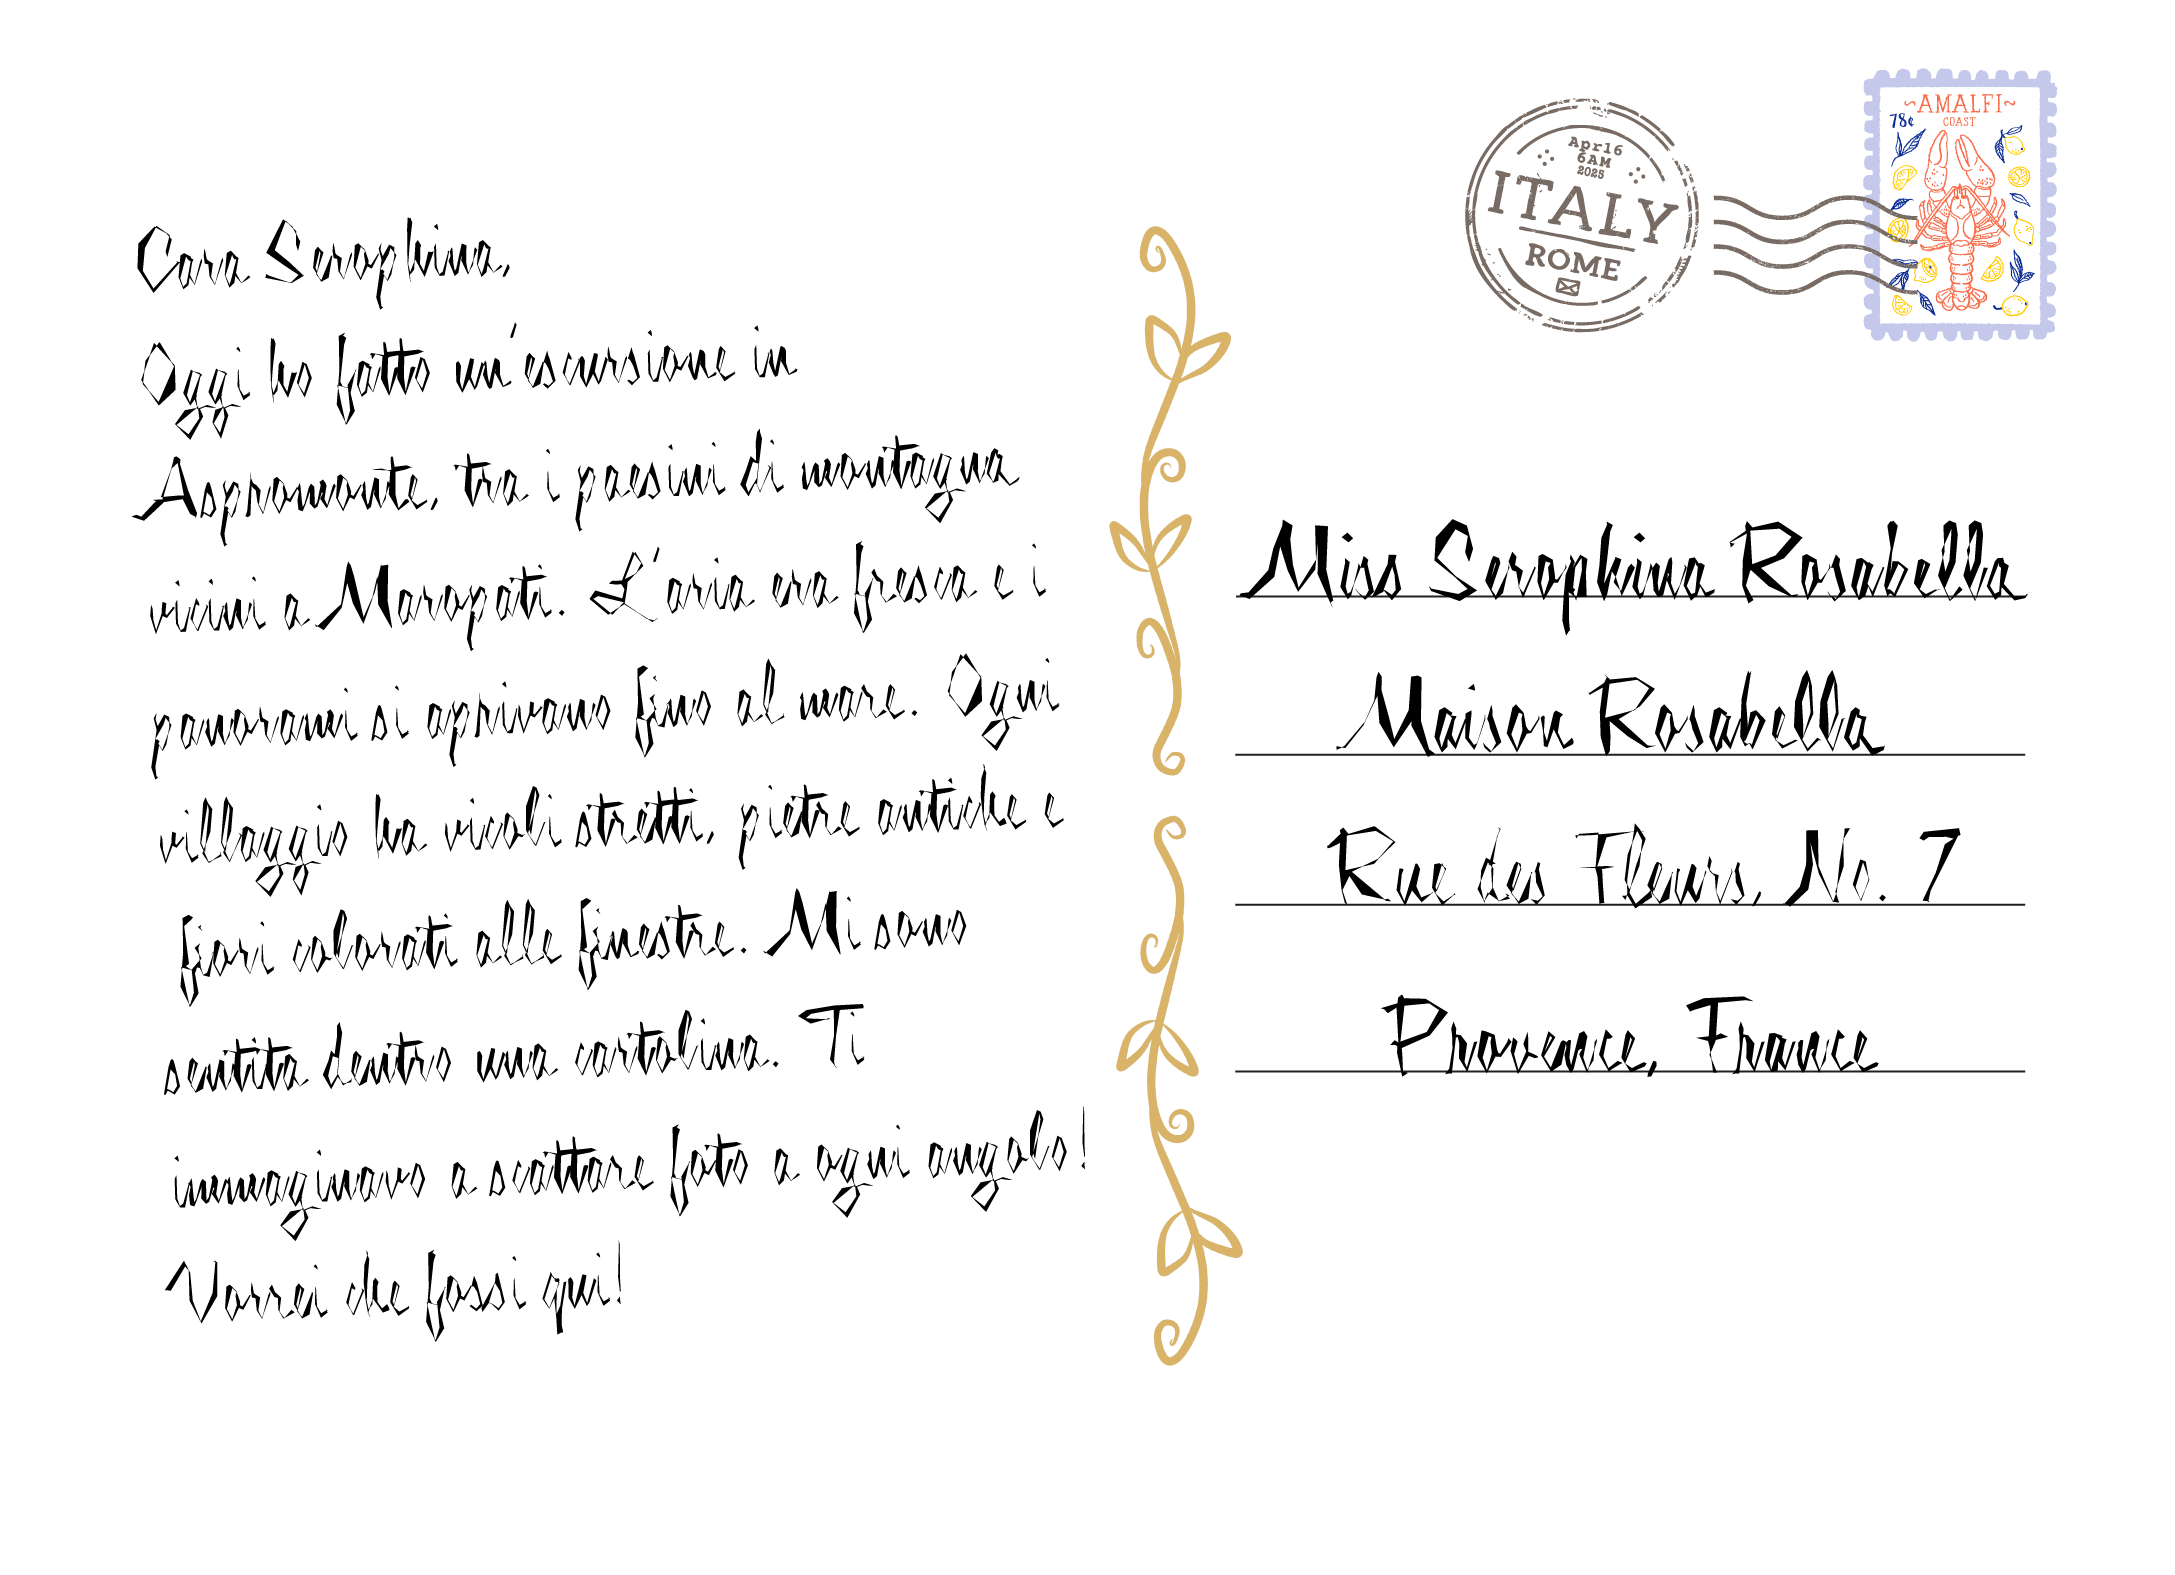 Cara Seraphina,
Oggi ho fatto un'escursione in
Aspromonte, tra i paesini di montagna
vicini a Maropati. L'aria era fresca e i
panorami si aprivano fino al mare. Ogni
villaggio ha vicoli stretti, pietre antiche e
fiori colorati alle finestre. Mi sono
sentita dentro una cartolina. Ti
immaginavo a scattare foto a ogni angolo!
Vorrei che fossi qui!
Apr16
6AM
2025
ITALY
ROME
~AMALFI~
COAST
78¢
Miss Seraphina Rosabella
Maison Rosabella
Rue des Fleurs, No. 7
Provence, France